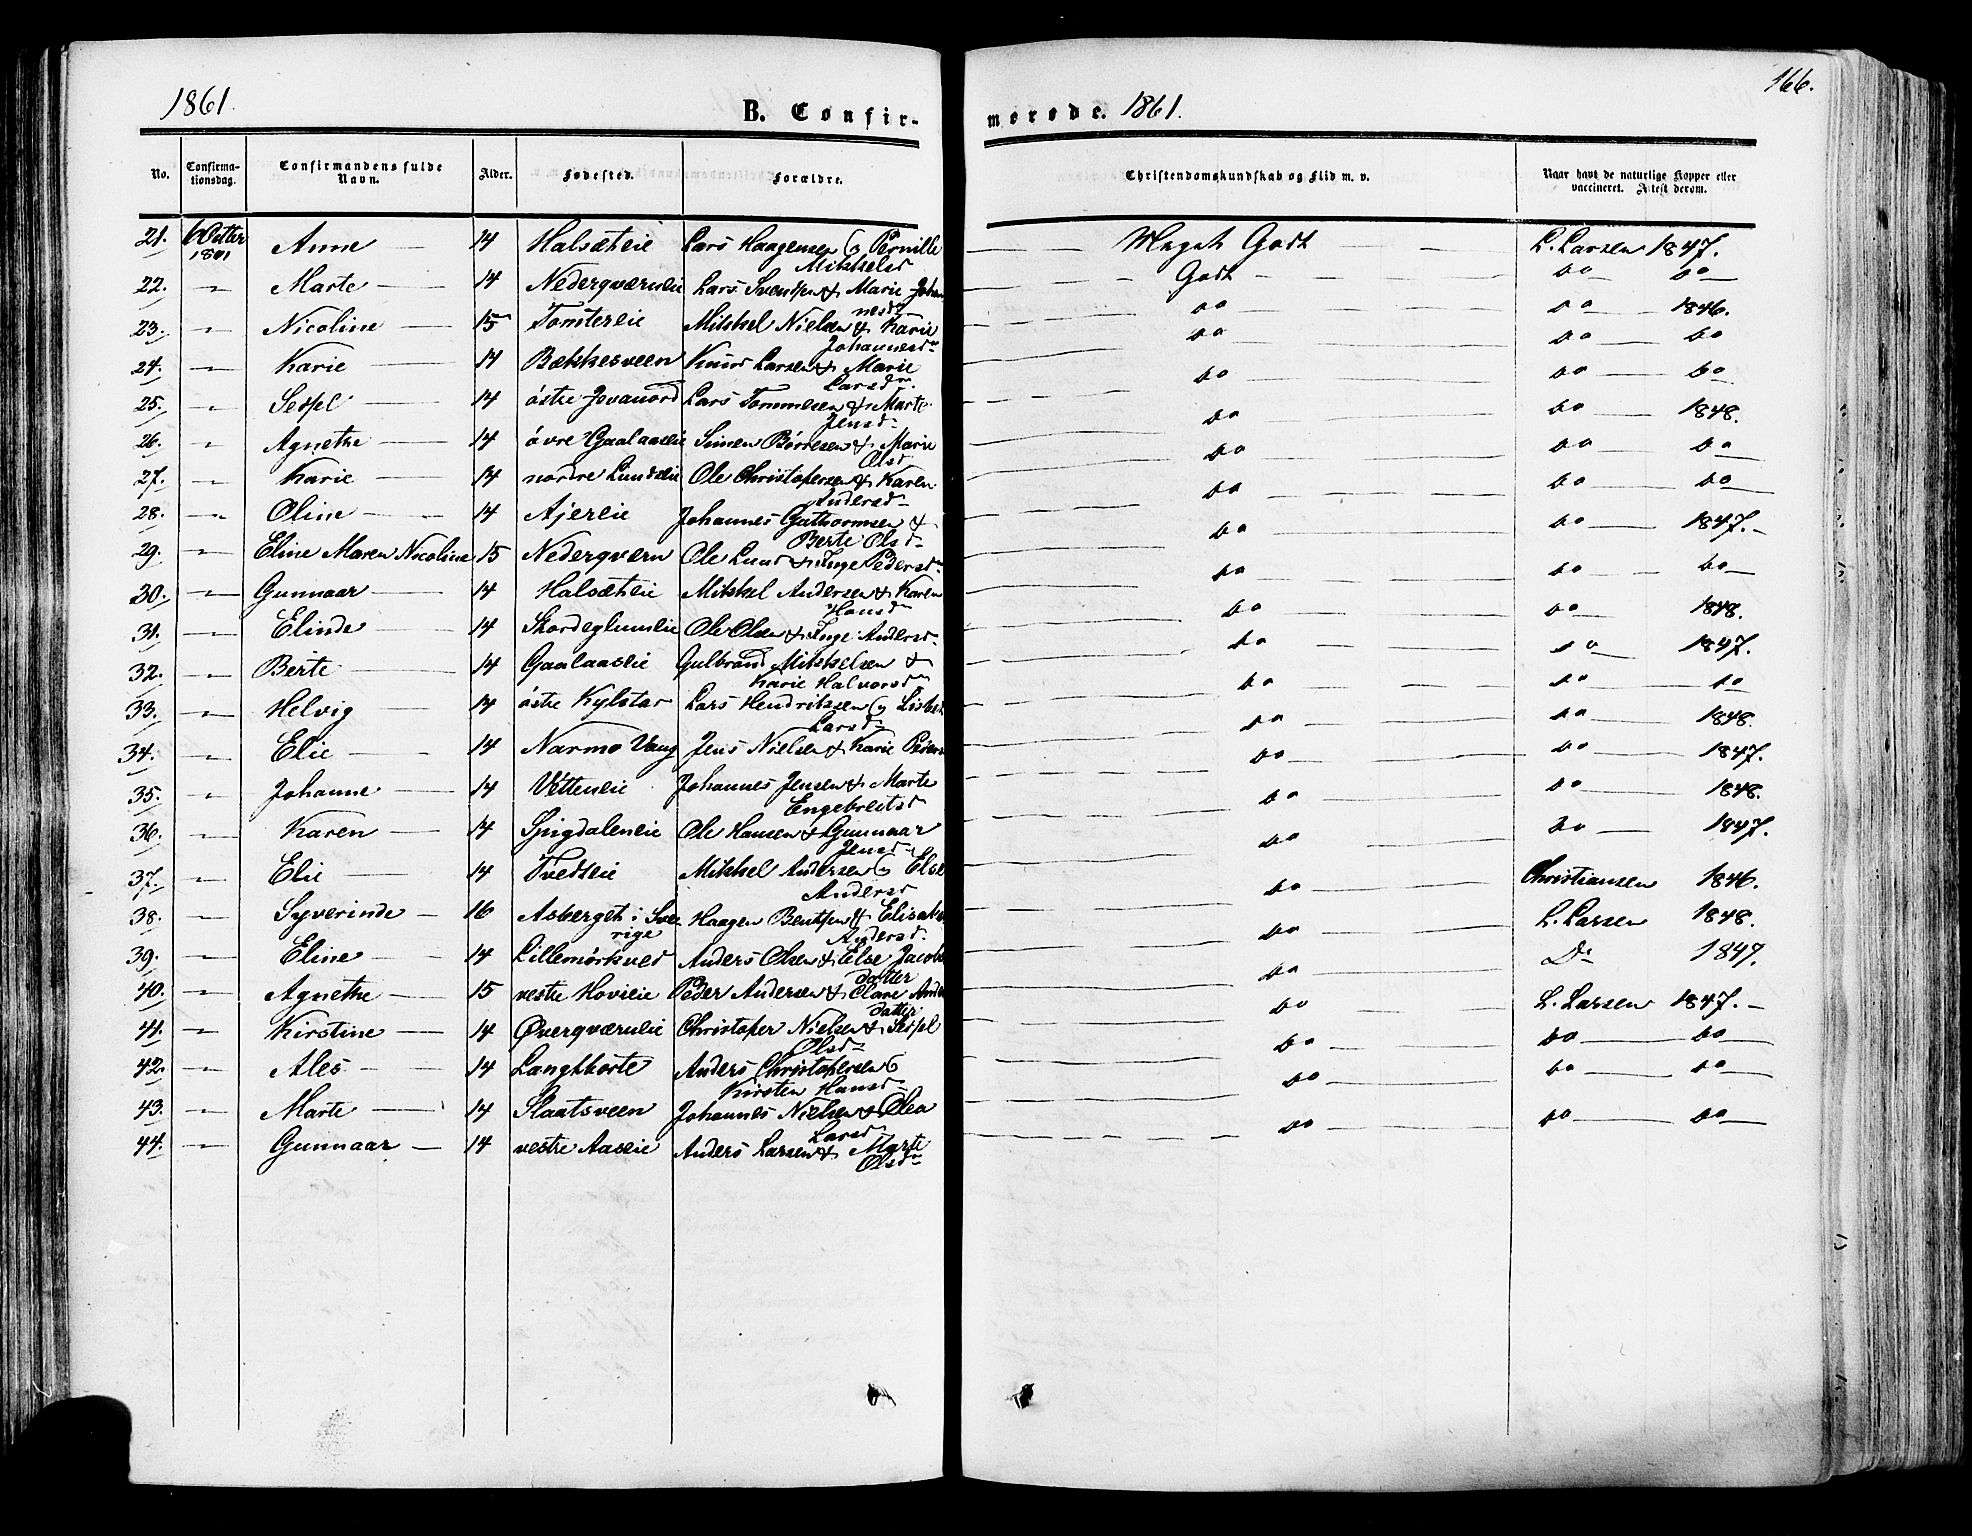 1861.
B. Confir-
No. Confirma-tionsdag. Confirmandens fulde Navn. Alder. Fødested. Forældre.
21. 6 Octbr 1861 Anne 14 Halsæteie Lars Haagensen og Pernille Mikkelsd
22. " Marte 14 Nederqværneie Lars Svendsen & Marie Johannesdr
23. " Nicoline 15 Tomtereie Mikkel Nielsen & Karie Johannesdr
24. " Karie 14 Bækkesveen Knud Larsen & Marie Larsdr.
25. " Sessel 14 østre Jevanord Lars Tommesen & Marte Jensd
26. " Agnethe 14 øvre Gaalaaseie Simen Børresen & Marie Olsd
27. " Karie 14 nordre Lundseie Ole Christopersen & Karen Andersdr
28. " Oline 14 Ajereie Johannes Guthormsen & Berte Olsdr
29. " Eline Maren Nicoline 15 Nederqværn Ole Lund & Inge Pedersdr
30. " Gunnaar 14 Halsæteie Mikkel Andersen & Karen Hansdr
31. " Elinde 14 Skordeglumeie Ole Olsen & Inge Andersdr
32. " Berte 14 Gaalaaseie Gulbrand Mikkelsen & Karie Halvorsdr
33. " Helvig 14 østre Kylstad Lars Hendriksen og Lisbet Larsdr
34. " Elie 14 Narmo Vang Jens Nielsen & Karie
35. " Johanne 14 Vetteneie Johannes Jensen & Marte Engebretsd
36. " Karen 14 Spigdaleneie Ole Hansen & Gunnaar Jensdr
37. " Elie 14 Tvedteie Mikkel Andersen og Else Andersd
38. " Syverinde 16 Asberget i Sverige Haagen Bentsen & Elisabet Andersd.
39. " Eline 14 Lillemørkved Anders Olsen & Else Jacobsdatter
40. " Agnethe 15 vestre Hovieie Peder Andersen & Olave Andersdatter
41. " Kirstine 14 Øverqværneie Christoper Nielsen & Sessel Olsdr
42. " Ales 14 Langkkorte Anders Christophersen & Kirsten Hansdr
43. " Marte 14 Slaatsveen Johannes Nielsen & Olea Larsdr
44. " Gunnaar 14 vestre Aaseie Anders Larsen & Marte Olsdr
166.
merede. 1861.
Christendomskundskab og Flid m. v. Naar havt de naturlige Kopper eller vaccineret. Attest derom.
Meget Godt L. Larsen 1847.
Godt do do
do do 1846.
do do do
do do do
do do 1848.
do do do
do do do
do do 1847.
do do do
do do 1848.
do do 1847.
do do do
do do 1848.
do do 1847.
do do 1848.
do do 1847.
do Christiansen 1846.
do L. Larsen 1848.
do Do 1847.
do L. Larsen 1847.
do do do
do do do
do do do